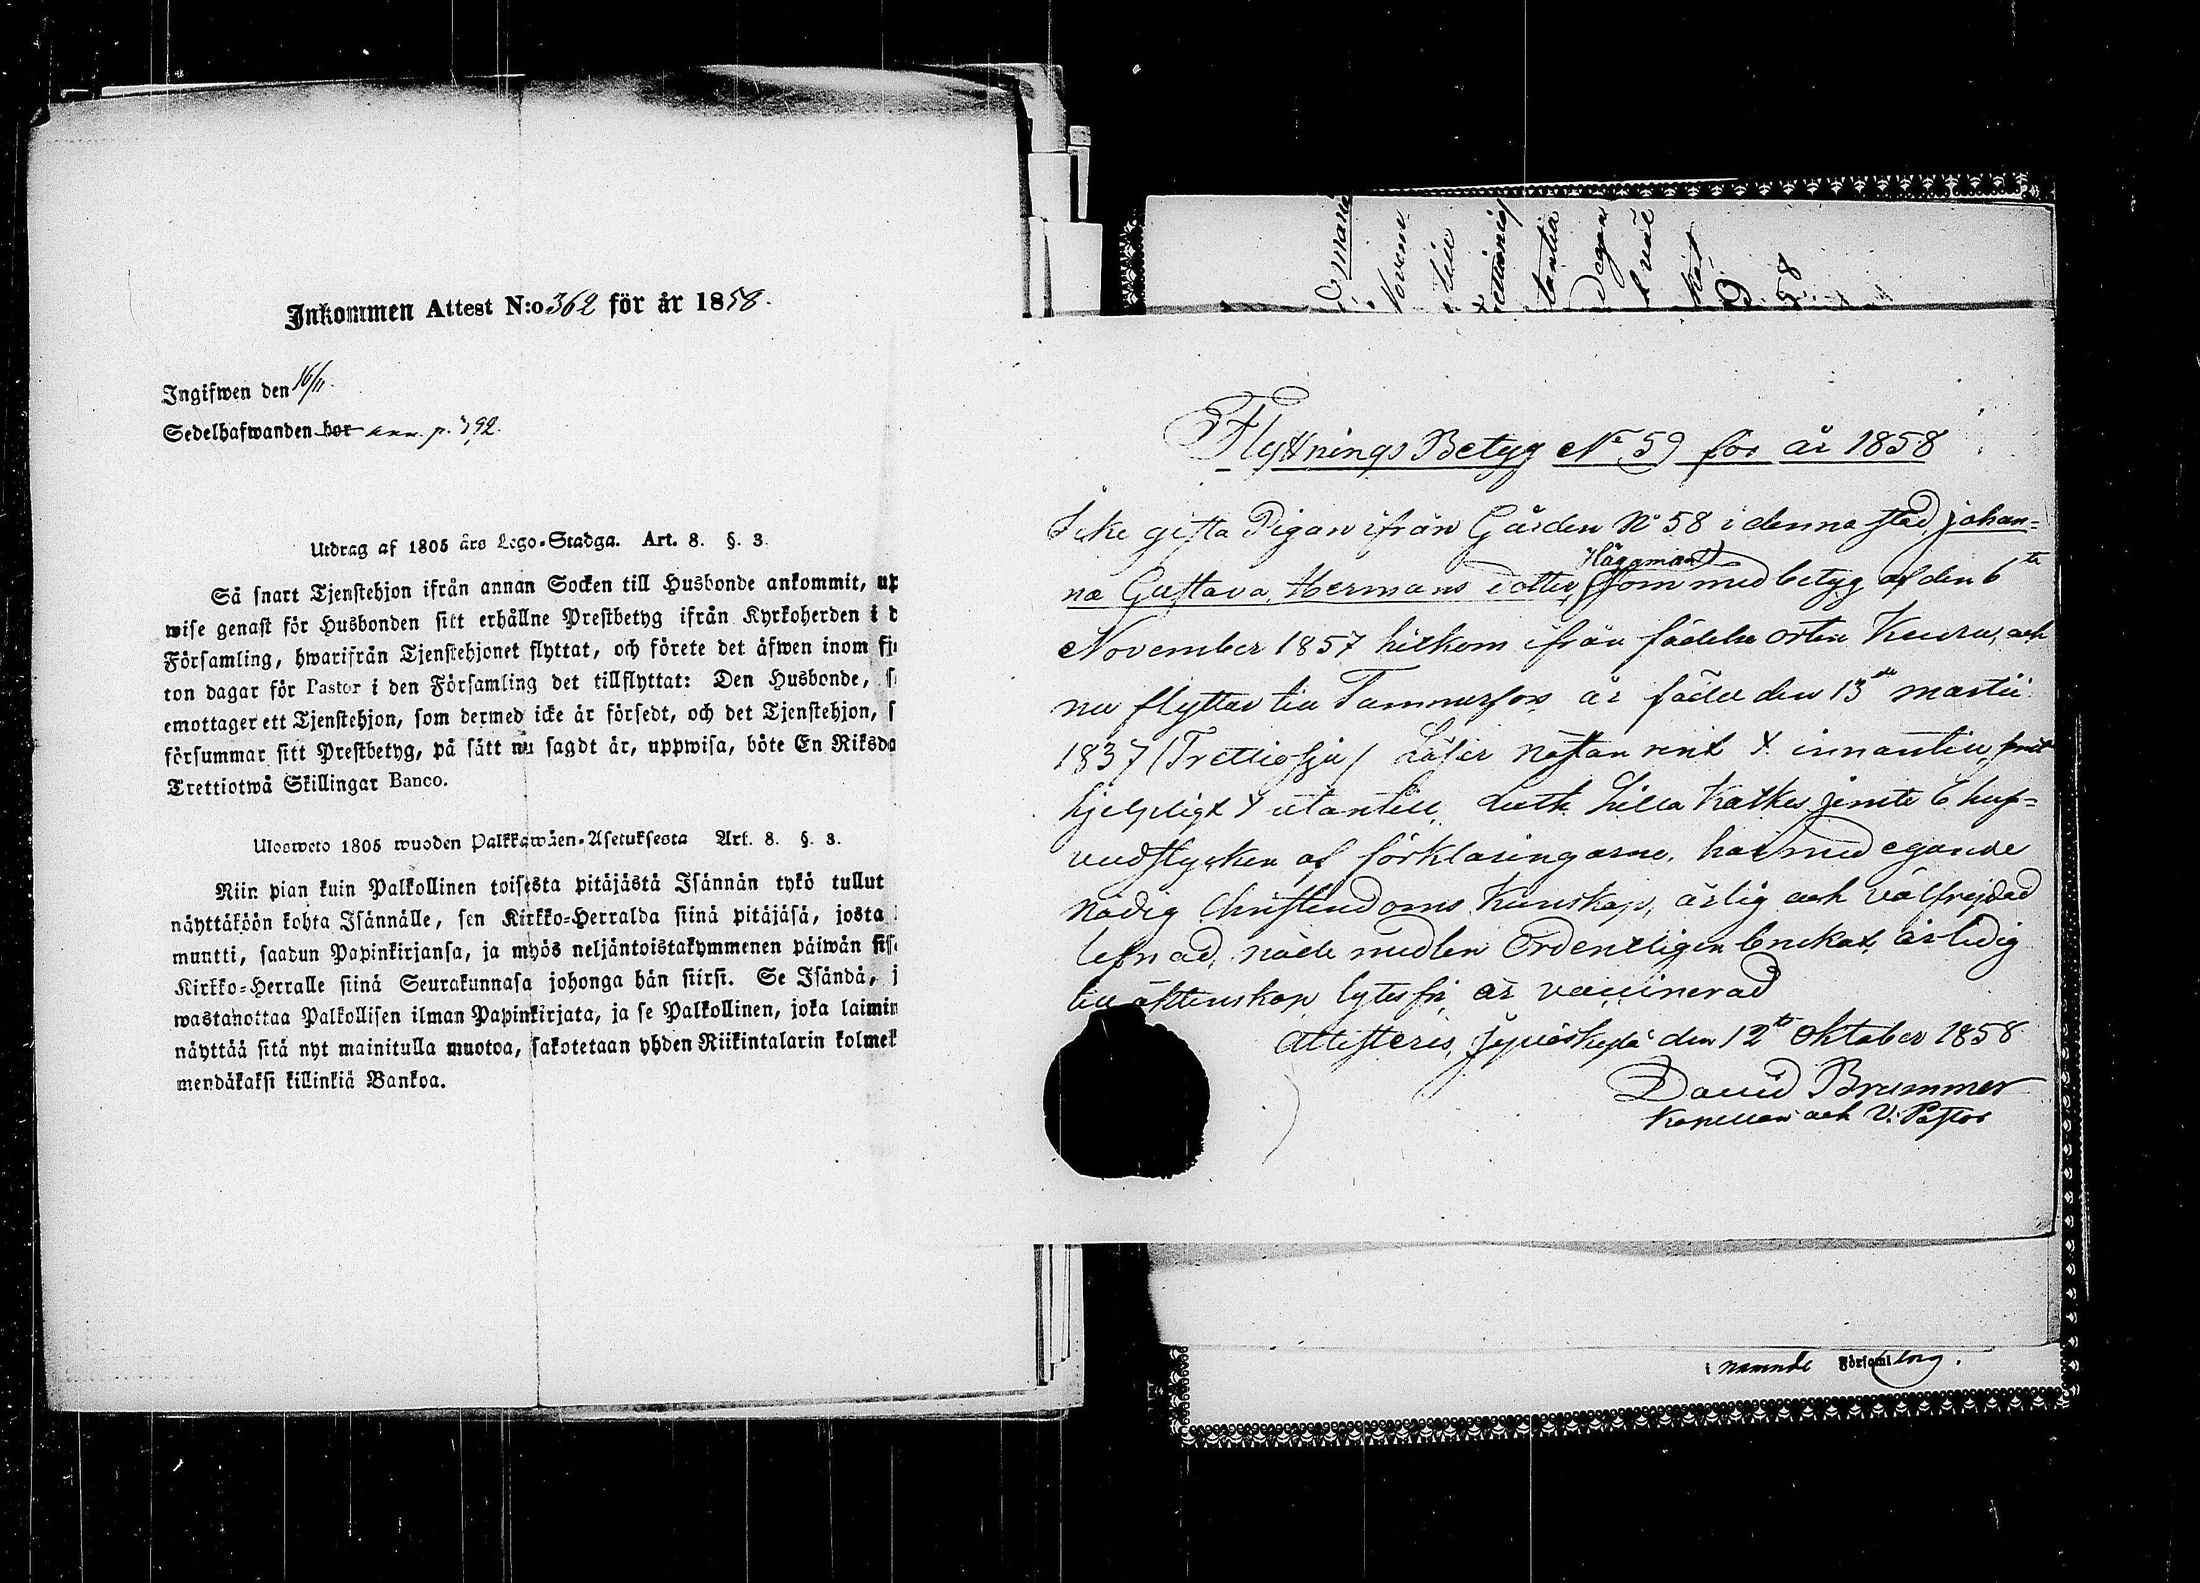 Inkommen Attest N:o 362 för år 1858.
Ingifwen den 16/11.
Sedelhafwanden bor ann. p. 392.
Utdrag af 1805 års Lego-Stadga. Art. 8. §. 3.
Så snart Tjenstehjon ifrån annan Socken till Husbonde ankommit, up
wise genast för Husbonden sitt erhållne Prestbetyg ifrån Kyrkoherden i d
Församling, hwarifrån Tjenstehjonet flyttat, och förete det äfwen inom fj
ton dagar för Pastor i den Församling det tillflyttat: Den Husbonde, s
emottager ett Tjenstehjon, som dermed icke är försedt, och det Tjenstehjon, s
försummar sitt Prestbetyg, på sätt nu sagdt är, uppwisa, böte En Riksda
Trettiotwå Skillingar Banco.
Ulosweto 1805 wuoden Palkkawäen-Asetuksesta Art. 8. §. 3.
Niin pian kuin Palkollinen toisesta pitäjästä Isännän tykö tullut
näyttäköön kohta Isännälle, sen Kirkko-Herralda siinä pitäjäsä, josta
muutti, saadun Papinkirjansa, ja myös neljäntoistakymmenen päiwän sis
Kirkko-Herralle siinä Seurakunnasa johonga hän siirsi. Se Isändä, j
wastanottaa Palkollisen ilman Papinkirjata, ja se Palkollinen, joka laimin
näyttää sitä nyt mainitulla muotoa, sakotetaan yhden Riikintalarin kolmek
mendäkaksi killinkiä Bankoa.
Flyttnings Betyg No 59 för år 1858
Icke gifta Pigan ifrån Gården No 58 i denna stad, Johan=
na Gustava, Hermans dotter, (Häggman) som med betyg af den 6te
November 1857 hitkom ifrån födelse orten Keuru, och
nu flyttar till Tammerfors är född den 13de martii
1837 (Trettiosju) Läser nästan rent X innantill,
hjelpligt X utantill, Luth. Lilla Katkes jemte 6 huf=
vudstycken af förklaringarne, har med egande
nödig Christendoms Kunskap, ärlig och välfrejdad
lefnad, nåde medlen Ordentligen brukat, är ledig
till äktenskap, lytesfri, är vaccinerad
Attesteras, Jyväskylä den 12te Oktober 1858
David Brummer
Kapellan och V. Pastor
i nämnde Församling.